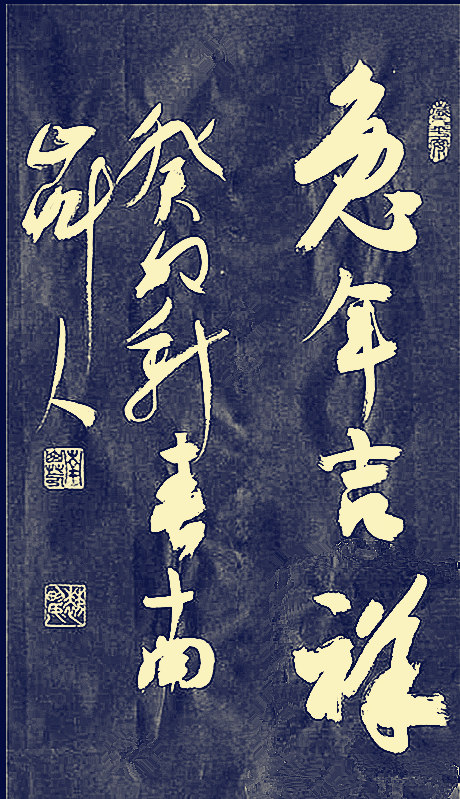 兔年吉祥
癸卯新春南
人